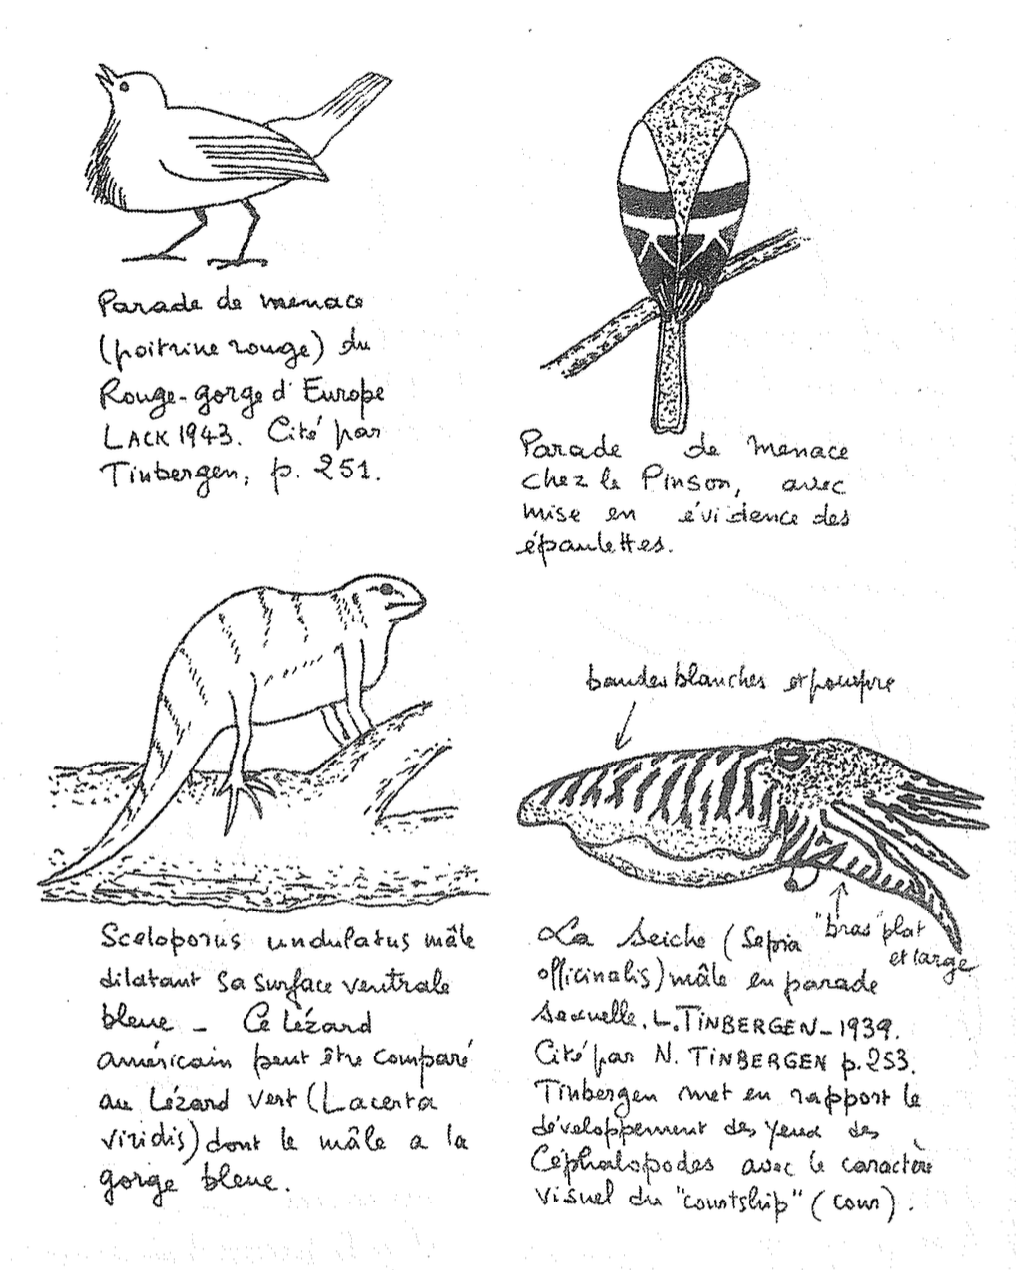 Parade de menace
(poitrine rouge) du
Rouge-gorge d'Europe
LACK 1943. Cité par
Tinbergen, p. 251.
Parade de menace
chez le Pinson, avec
mise en évidence des
épaulettes.
Sceloporus undulatus mâle
dilatant sa surface ventrale
bleue - Ce lézard
américain peut être comparé
au Lézard vert (Lacerta
viridis) dont le mâle a la
gorge bleue.
bandes blanches et pourpre
"bras" plat
et large
La Seiche (Sepia
officinalis) mâle en parade
sexuelle. L. TINBERGEN - 1939.
Cité par N. TINBERGEN p. 253.
Tinbergen met en rapport le
développement des yeux des
Céphalopodes avec le caractère
visuel du "courtship" (cour).